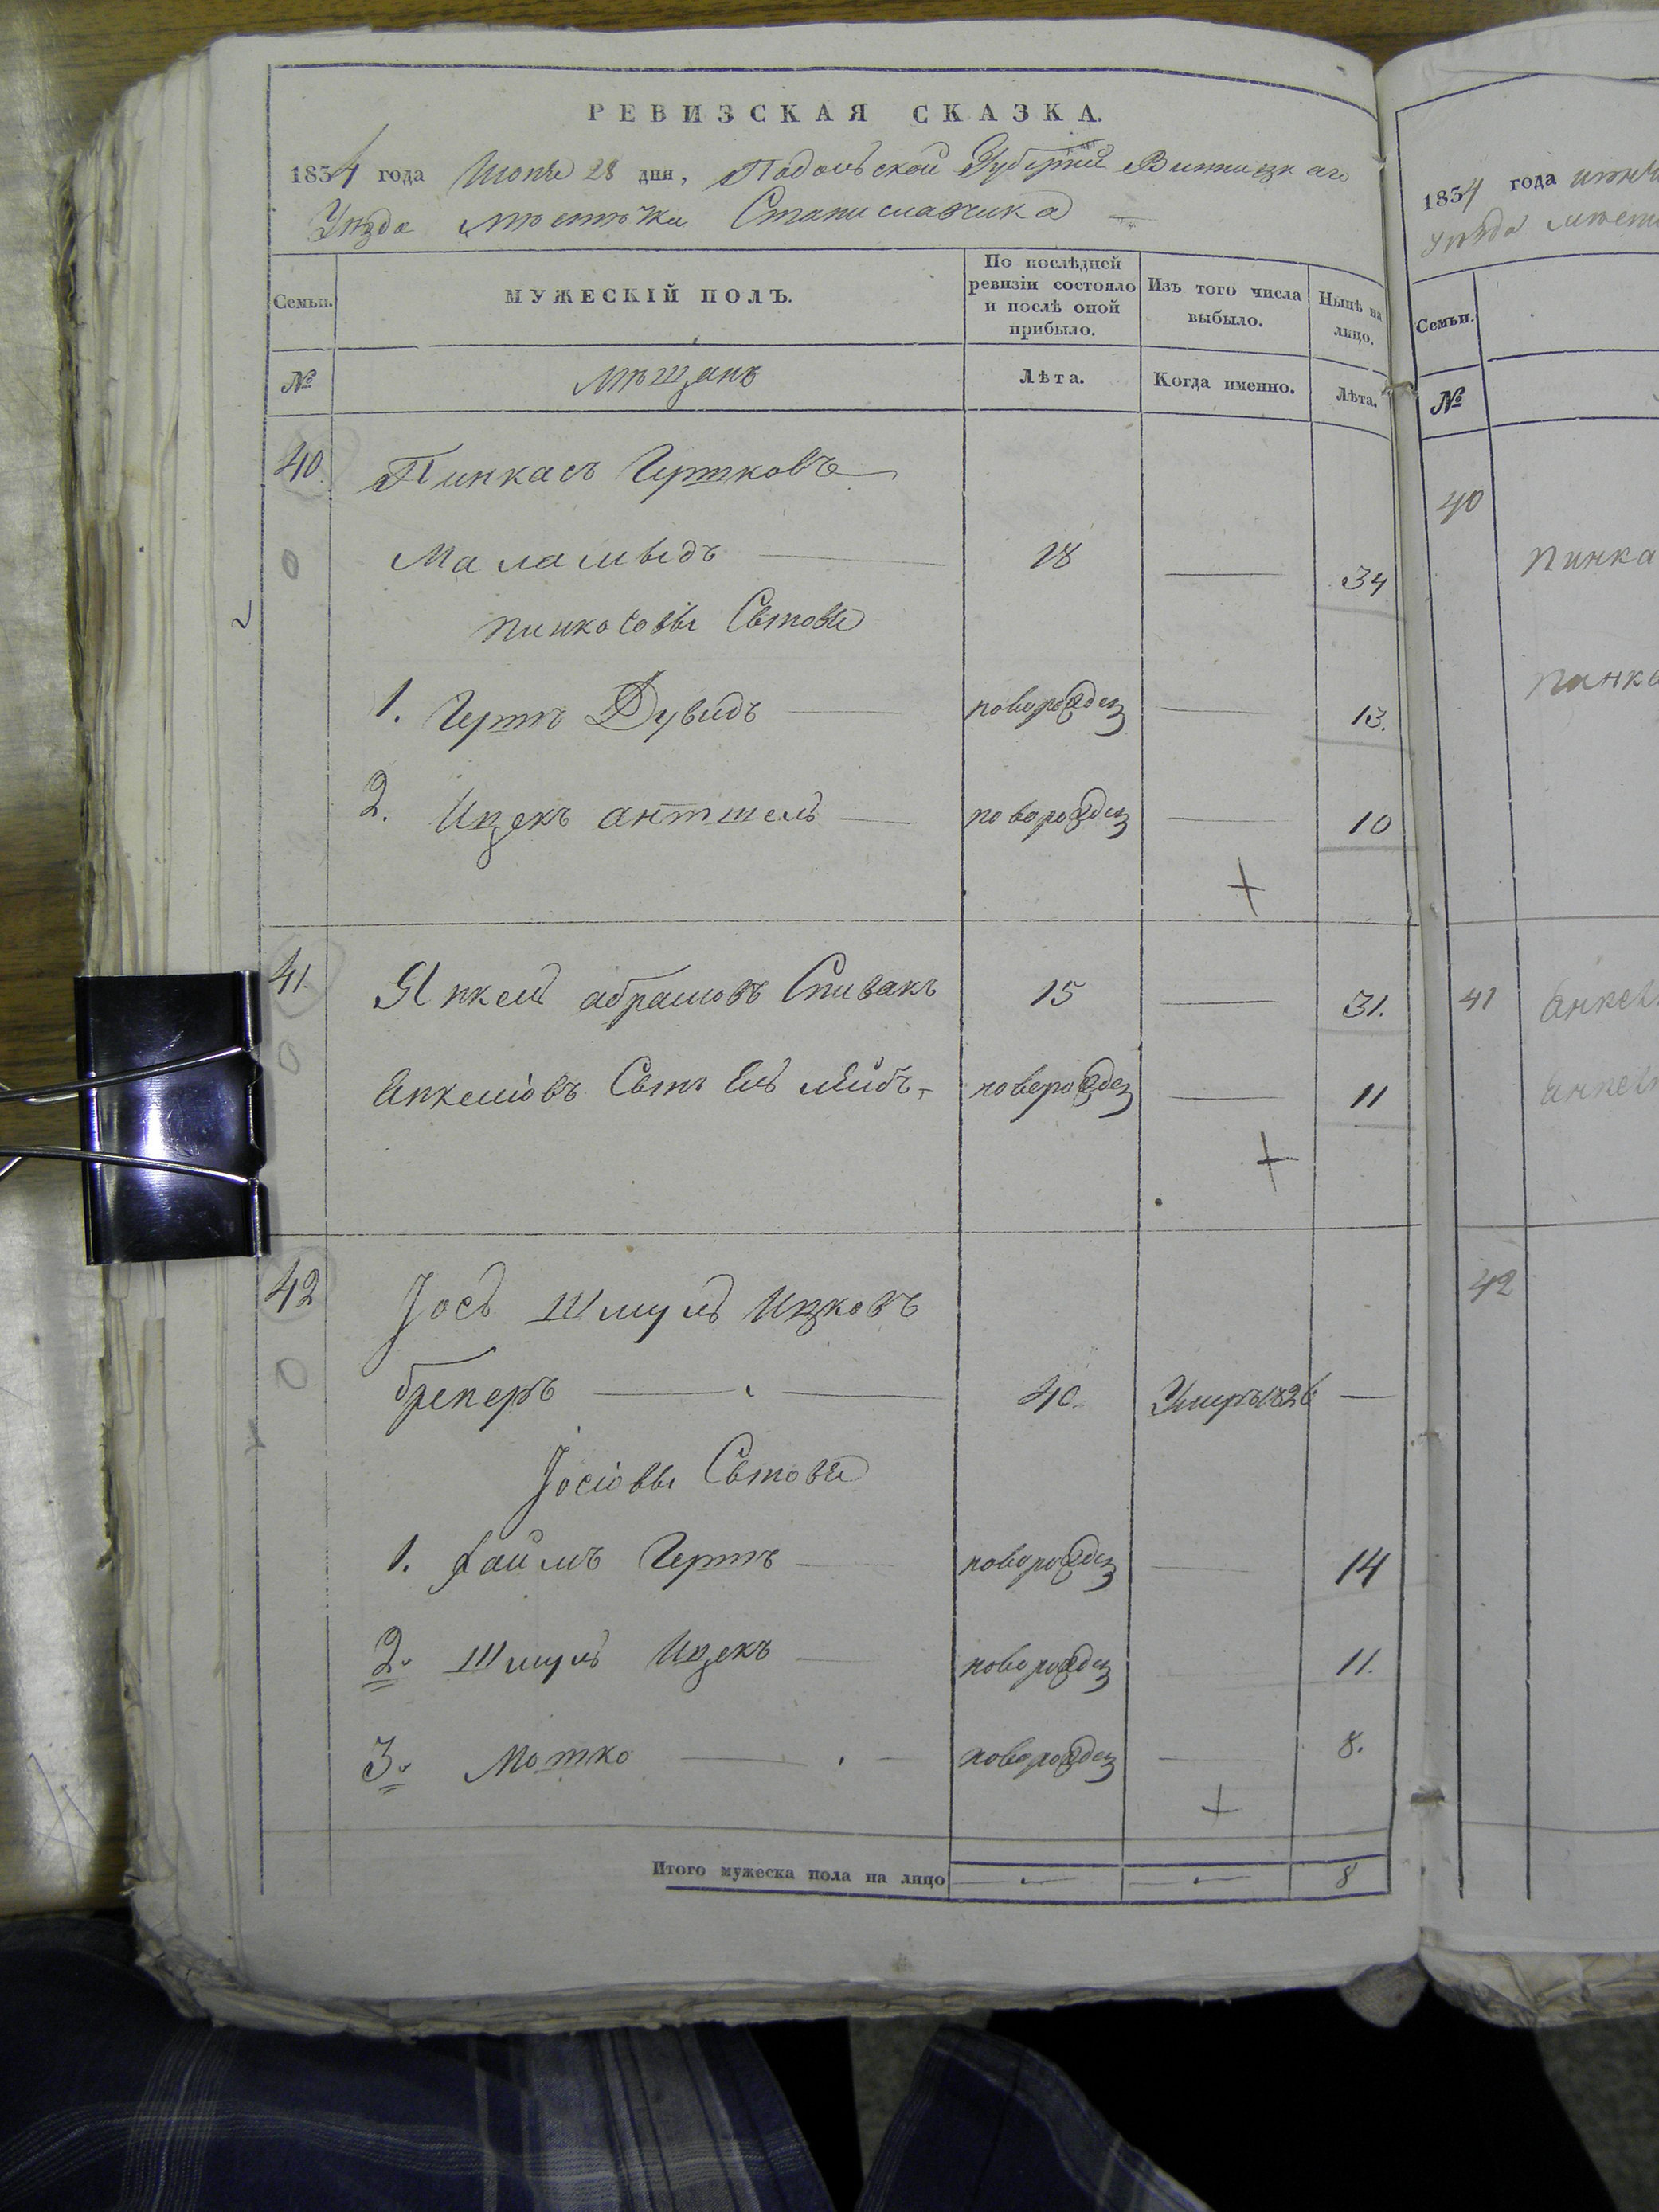 РЕВИЗСКАЯ СКАЗКА.
1834 года Июня 28 дня, Подольской Губерніи Винницкаго
Уѣзда мѣстечка Станиславчика
Семьи.
МУЖЕСКІЙ ПОЛЪ.
По послѣдней ревизіи состояло и послѣ оной прибыло.
Изъ того числа выбыло.
Нынѣ на лицо.
№
Мѣщанъ
Лѣта.
Когда именно.
Лѣта.
40 Пинкасъ Гершковъ
Маламыдъ 18 34
Пинкасовы Сыновья
1. Гершъ Дувидъ новорожден 13.
2. Ицекъ Аншель новорожден 10
41. Янкель Абрамовъ Спивакъ 15 31.
Янкеліовъ Сынъ Ель Лейбъ новорожден 11
42 Іось Шмуль Ицковъ
бренеръ 40. Умеръ 1826
Іосіовы Сыновья
1. Хаимъ Гершъ новорожден 14
2. Шмуль Ицекъ новорожден 11.
3. Мошко новорожден 8.
Итого мужеска пола на лицо 8
1834 года
Семьи.
№
40
Пинка
41
Янкел
Янкел
42